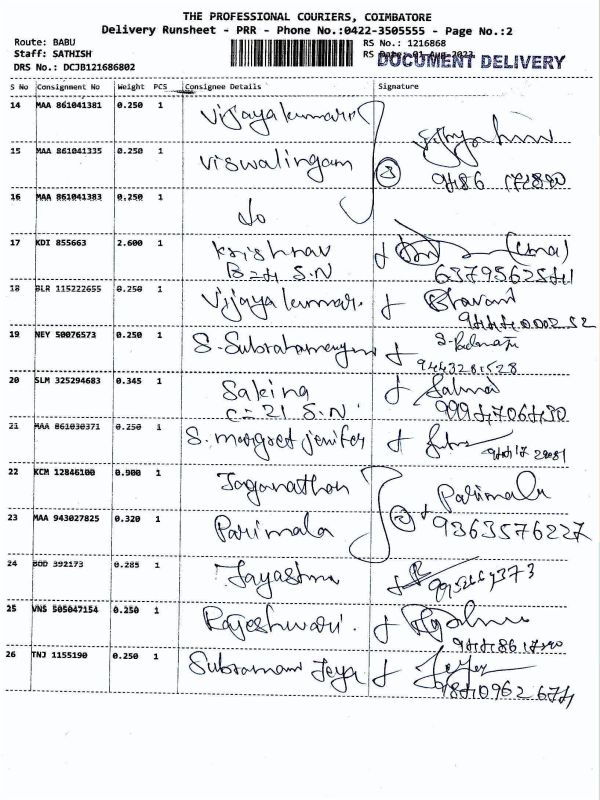 THE PROFESSIONAL COURIERS, COIMBATORE
Delivery Runsheet - PRR - Phone No.:0422-3505555 - Page No.:2
Route: BABU RS No.: 1216868
Staff: SATHISH RS Date: 01-Aug-2023 DOCUMENT DELIVERY
DRS No.: DCJB121686802
S No Consignment No Weight PCS Consignee Details Signature
14 MAA 861041381 0.250 1 Vijayakumari
15 MAA 861041335 0.250 1 Viswalingam 3
16 MAA 861041383 0.250 1 do
17 KDI 855663 2.600 1 Krishnav (Uma)
B=4 S.N
18 BLR 115222655 0.250 1 Vijayakumar. Bhavani
19 NEY 50076573 0.250 1 S. S-Padma
9443281528
20 SLM 325294683 0.345 1 Sakina Salma
C=21 S.N. 9994706430
21 MAA 861030371 0.250 1 S. margret jenifer
22 KCM 12846100 0.900 1 Jaganathan Parimala
23 MAA 943027825 0.320 1 Parimala 2 9363576227
24 BOD 392173 0.285 1
25 VNS 505047154 0.250 1 Rajeshwari.
26 TNJ 1155190 0.250 1 Subramani Jeya
9840962674